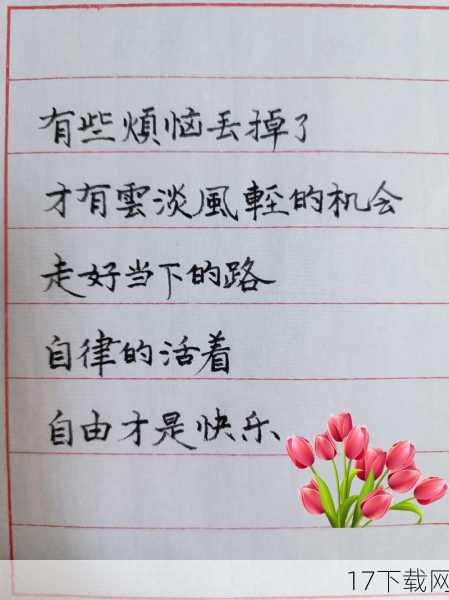 有些煩恼丢掉了
才有雲淡風輕的机会
走好当下的路
自律的活着
自由才是快乐
17下载网